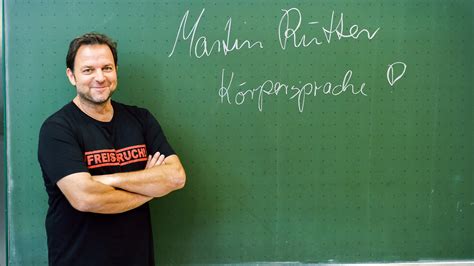 Martin Rütter
Körpersprache
FREISPRUCH!